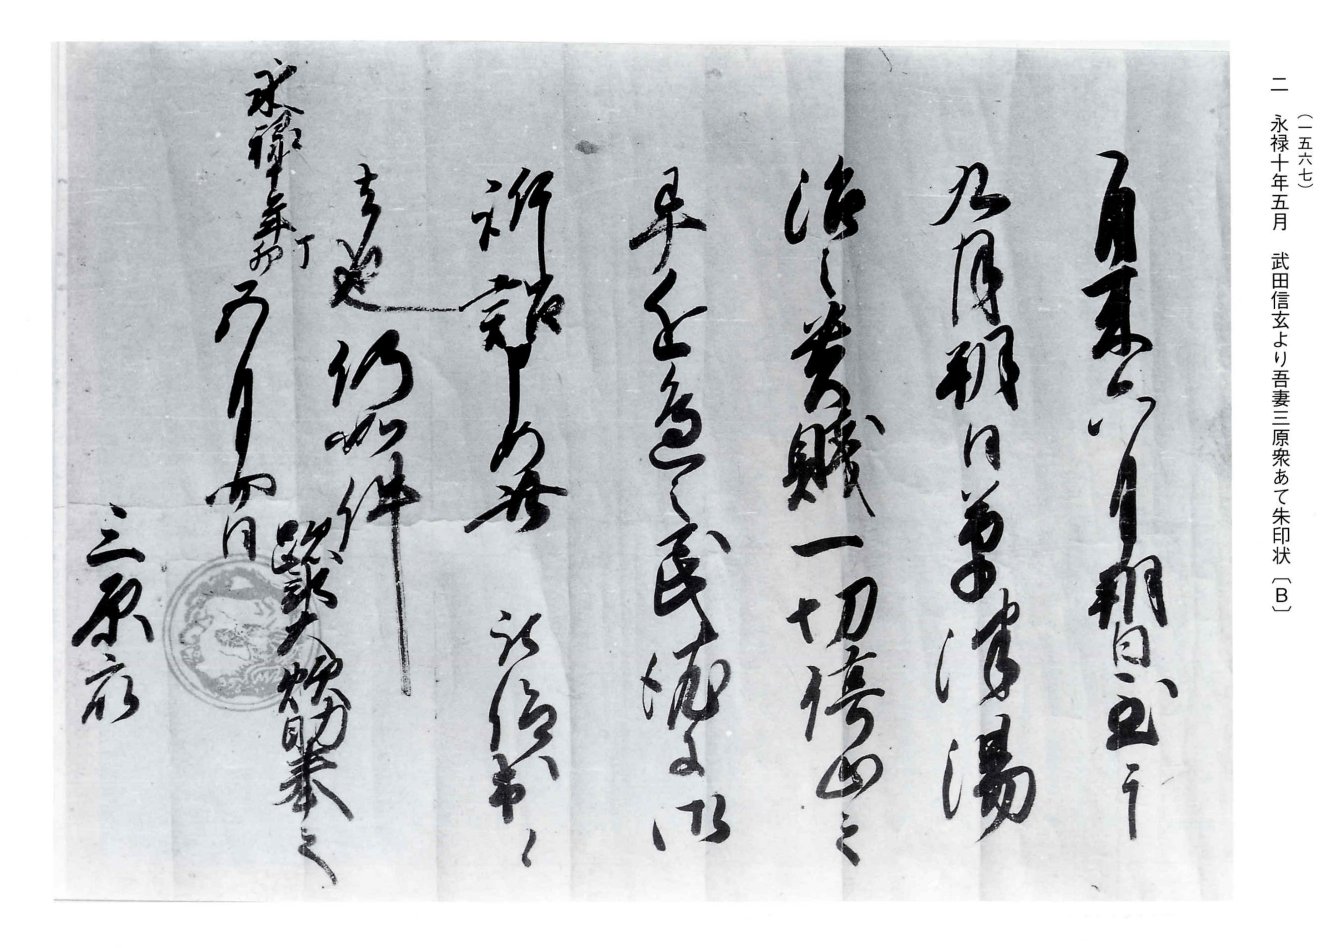 (一五六七)
二　永禄十年五月　武田信玄より吾妻三原衆あて朱印状〔B〕
自来六月朔日至于
九月朔日草津湯
治之貴賤一切停止之
畢近邊之民
訴詔申如此
者也仍如件
永禄十年丁卯
五月四日
跡部大炊助奉之
三原衆